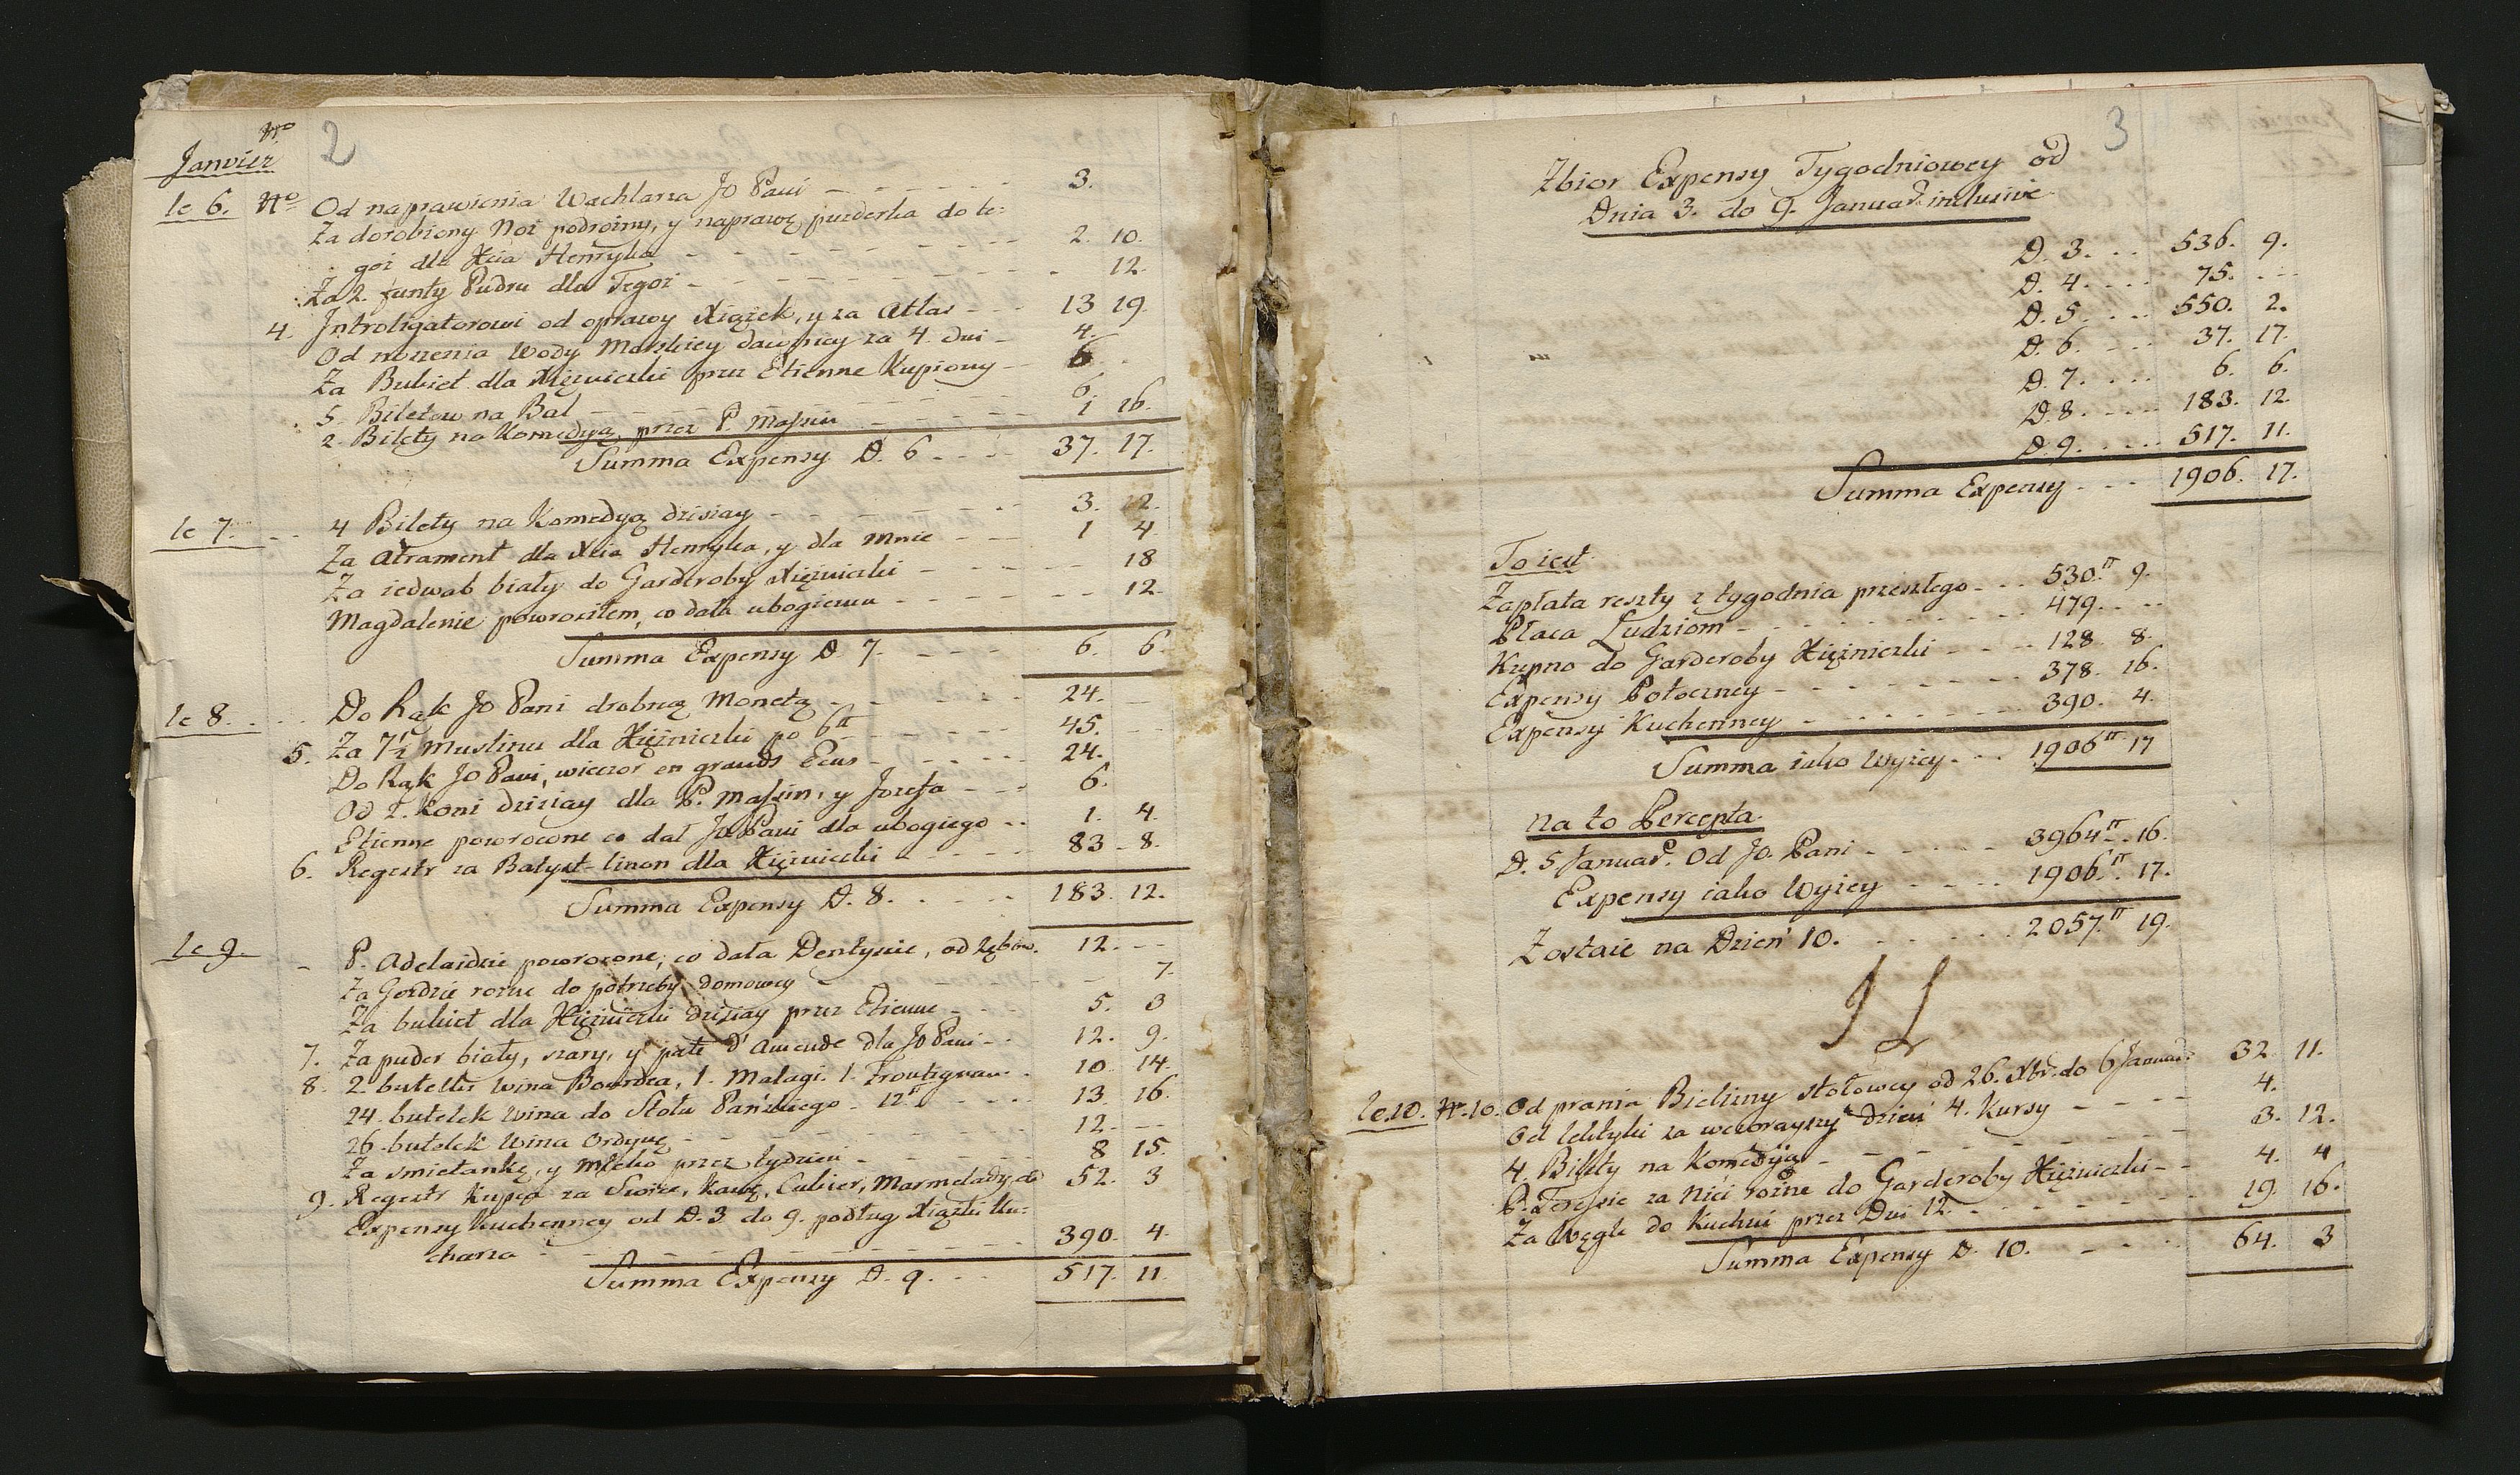 No 2
Janvier
le 6. No Od naprawienia Wachlarza JO Pani - - - - - - 3.
Za dorobiony Noż podrożny, y naprawę puzderka do te-
goż dla Xcia Henryka - - - - - - - - 2. 10.
Za 2. funty Pudru dla Tegoż - - - - - - - - 12.
4. Introligatorowi od oprawy Xiążek, y za Atlas - - - 13 19.
Od noszenia Wody Morskiey dawnicy za 4. dni - 4.
Za Bukiet dla Xiężniczki przez Etienne Kupiony - 6
5. Biletow na Bal - - - - - - - - 6.
2. Bilety na Komedyą, przez P. Massin - - - - - 1 16.
Summa Expensy D. 6 - - - - 37. 17.
le 7. - - - 4 Bilety na Komedyą dzisiay - - - - - - - 3. 12.
Za Atrament dla Xcia Henryka, y dla Mnie - - - 1 4.
Za iedwab biały do Garderoby Xiężniczki - - - - - 18
Magdalenie powrociłem, co dała ubogiemu - - - - - - 12.
Summa Expensy D 7. - - - - 6. 6.
le 8. - - - - Do Rąk JO Pani drobną Monetą - - - - - 24. - -
5. Za 7½ Muslinu dla Xiężniczki po 6tt - - - - - 45. - -
Do Rąk JO Pani, wieczor en grands Ecus - - - - - 24.
Od 2. Koni dzisiay dla P. Massin, y Jozefa - - - 6.
Etienne powrocone co dał JO Pani dla ubogiego - - 1. 4.
6. Regestr za Batyst-linon dla Xiężniczki - - - - - - 83 - 8.
Summa Expensy D. 8. - - - - 183. 12.
le 9. - P. Adelaidzie powrocone, co dała Dentyście, od Zębow. 12. - -
Za Gozdzie rozne do potrzeby domowey - - - - - - 7.
Za bukiet dla Xiężniczki dzisiay przez Etienne - - - 5. 3
7. Za puder biały, szary, y pate d'Amende dla JO Pani - - 12. 9.
8. 2. butelki wina Bourdea, 1. Malagi. 1. Frontignan. - 10 14.
24. butelek wina do Stołu Pańskiego - 12 - - - - 13. 16.
26. butelek wina Ordynę - - - - - - - - 12. - -
Za smietankę, y mleko przez tydzień - - - - - - 8 15.
9. Regestr Kupca za Swiece, Kawę, Cukier, Marmeladę, &c 52. 3
Expensy kuchenney od D. 3 do 9. podług Xiążki Ku-
charza - - - - - - - - - - - - 390. 4.
Summa Expensy D. 9. - - - 517. 11.
3
Zbior Expensy Tygodniowey od
Dnia 3. do 9. Januar. inclusive
D. 3. - - - 536. 9.
D. 4. - - - 75. - - -
D. 5. - - - 550. 2.
D. 6. - - - 37. 17.
D. 7. - - - 6. 6.
D. 8. - - - 183. 12.
D. 9. - - - 517. 11.
Summa Expensy - - - 1906. 17.
To iest
Zapłata reszty z tygodnia przeszłego - - - 530.tt 9.
Płaca Ludziom - - - - - - - - - - 479. - - -
Kupno do Garderoby Xiężniczki - - - - - 128 8.
Expensy Potoczney - - - - - - - - 378. 16.
Expensy Kuchenney - - - - - - - - 390. 4.
Summa iako wyżey - - - 1906tt 17
na to Percepta.
D. 5 Januar. Od JO. Pani - - - - - - 3964tt - 16.
Expensy iako wyżey - - - - - 1906.tt 17.
Zostaie na Dzień 10. - - - - - - 2057.tt 19.
le. 10. No. 10. Od prania Bielizny stołowey od 26. Xbr. do 6 Januar. 32 11.
Od lektyki za wczorayszy dzień 4. Kursy - - - - 4.
4. Bilety na Komedyą - - - - - - - - - 3. 12.
P. Teressie za Nici rożne do Garderoby Xiężniczki - - 4. 4
Za Węgle do Kuchni przez Dni 12 - - - - - - - 19. 16.
Summa Expensy D. 10. - - - - 64. 3